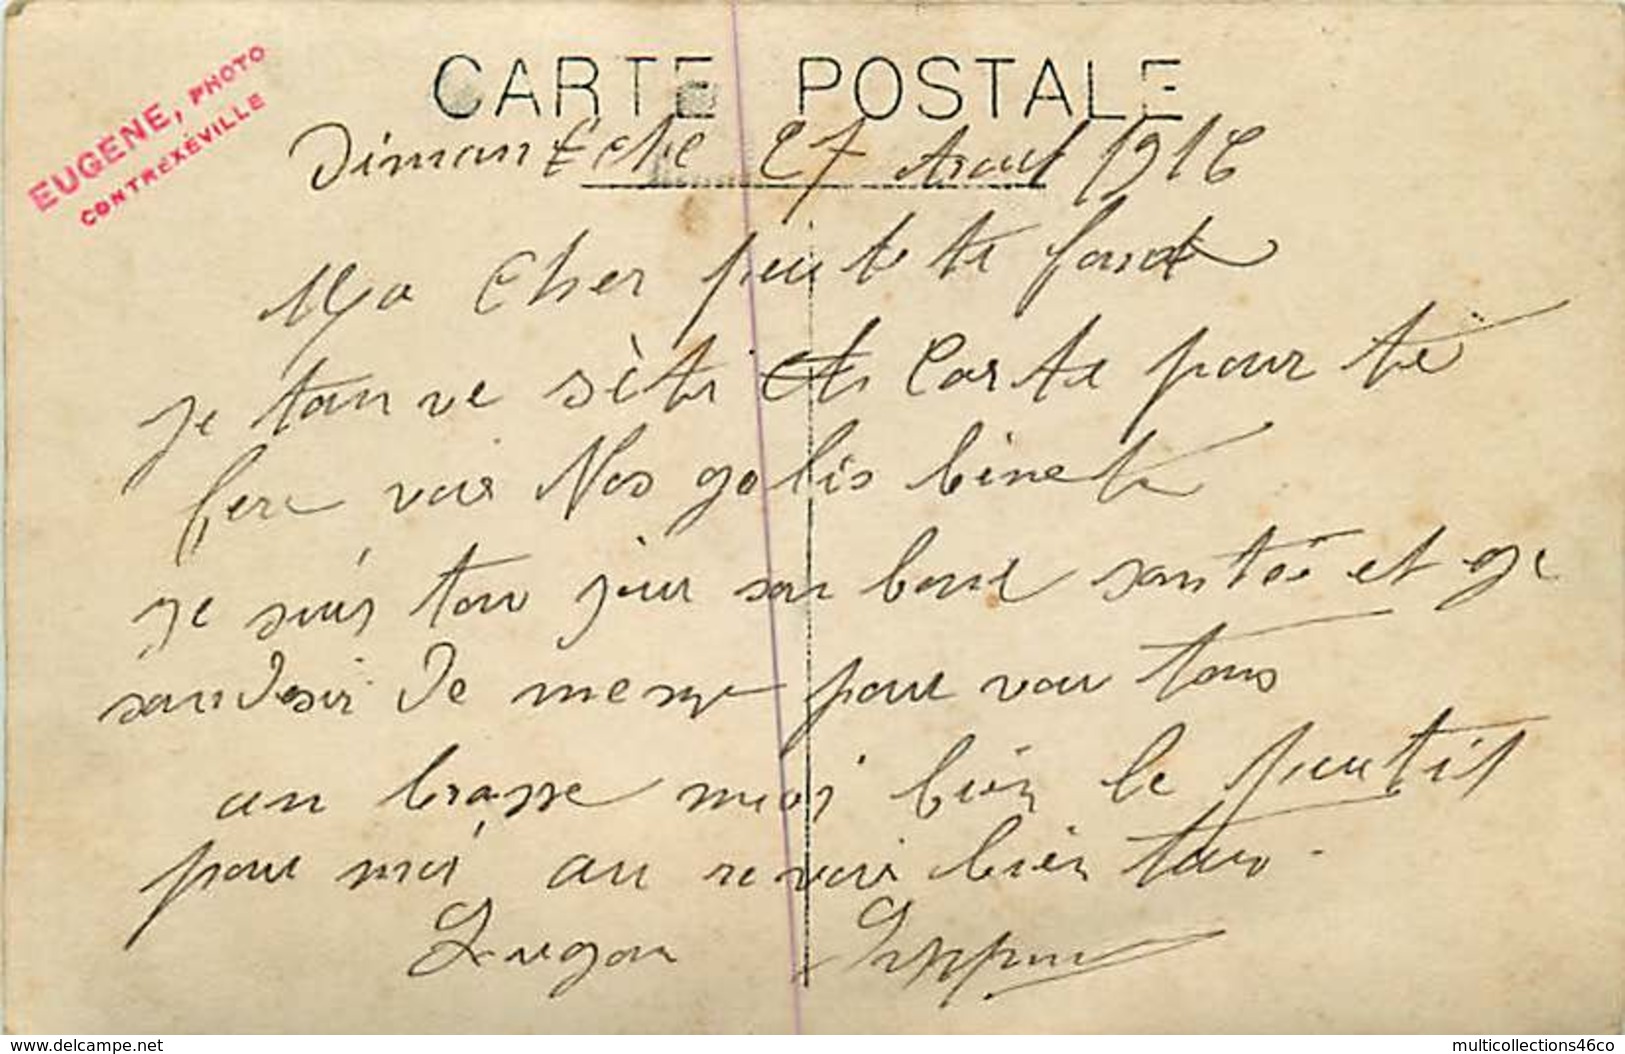 EUGENE, PHOTO
CONTREXÉVILLE
CARTE POSTALE
Dimanche 27 Aout 1916
Ma Cher
je tan ve sète Carte pour te
fere voir Nos golis binet
je suis tou jour san bone santée et ge
san desir de meme pour vou tous
an brasse moi bien le peutit
pour moi au revoir bien tau
www.delcampe.net
multicollections46co